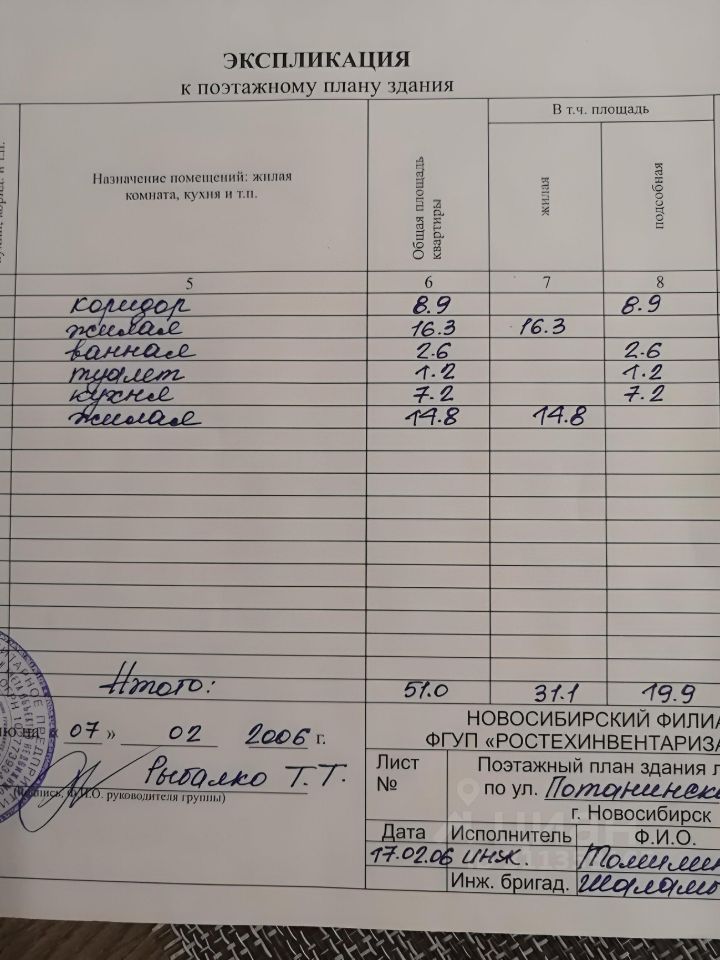 ЭКСПЛИКАЦИЯ
к поэтажному плану здания
Назначение помещений: жилая
комната, кухня и т.п.
Общая площадь
квартиры
В т.ч. площадь
жилая
подсобная
5 6 7 8
коридор 8.9 8.9
жилая 16.3 16.3
ванная 2.6 2.6
туалет 1.2 1.2
кухня 7.2 7.2
жилая 14.8 14.8
Итого: 51.0 31.1 19.9
на « 07 » 02 2006 г.
Рыбалко Т.Т.
Ф.И.О. руководителя группы)
НОВОСИБИРСКИЙ ФИЛИА
ФГУП «РОСТЕХИНВЕНТАРИЗА
Лист
№
Поэтажный план здания л
по ул. Потанинска
г. Новосибирск
Дата Исполнитель Ф.И.О.
17.02.06 инж. Томилин
Инж. бригад.